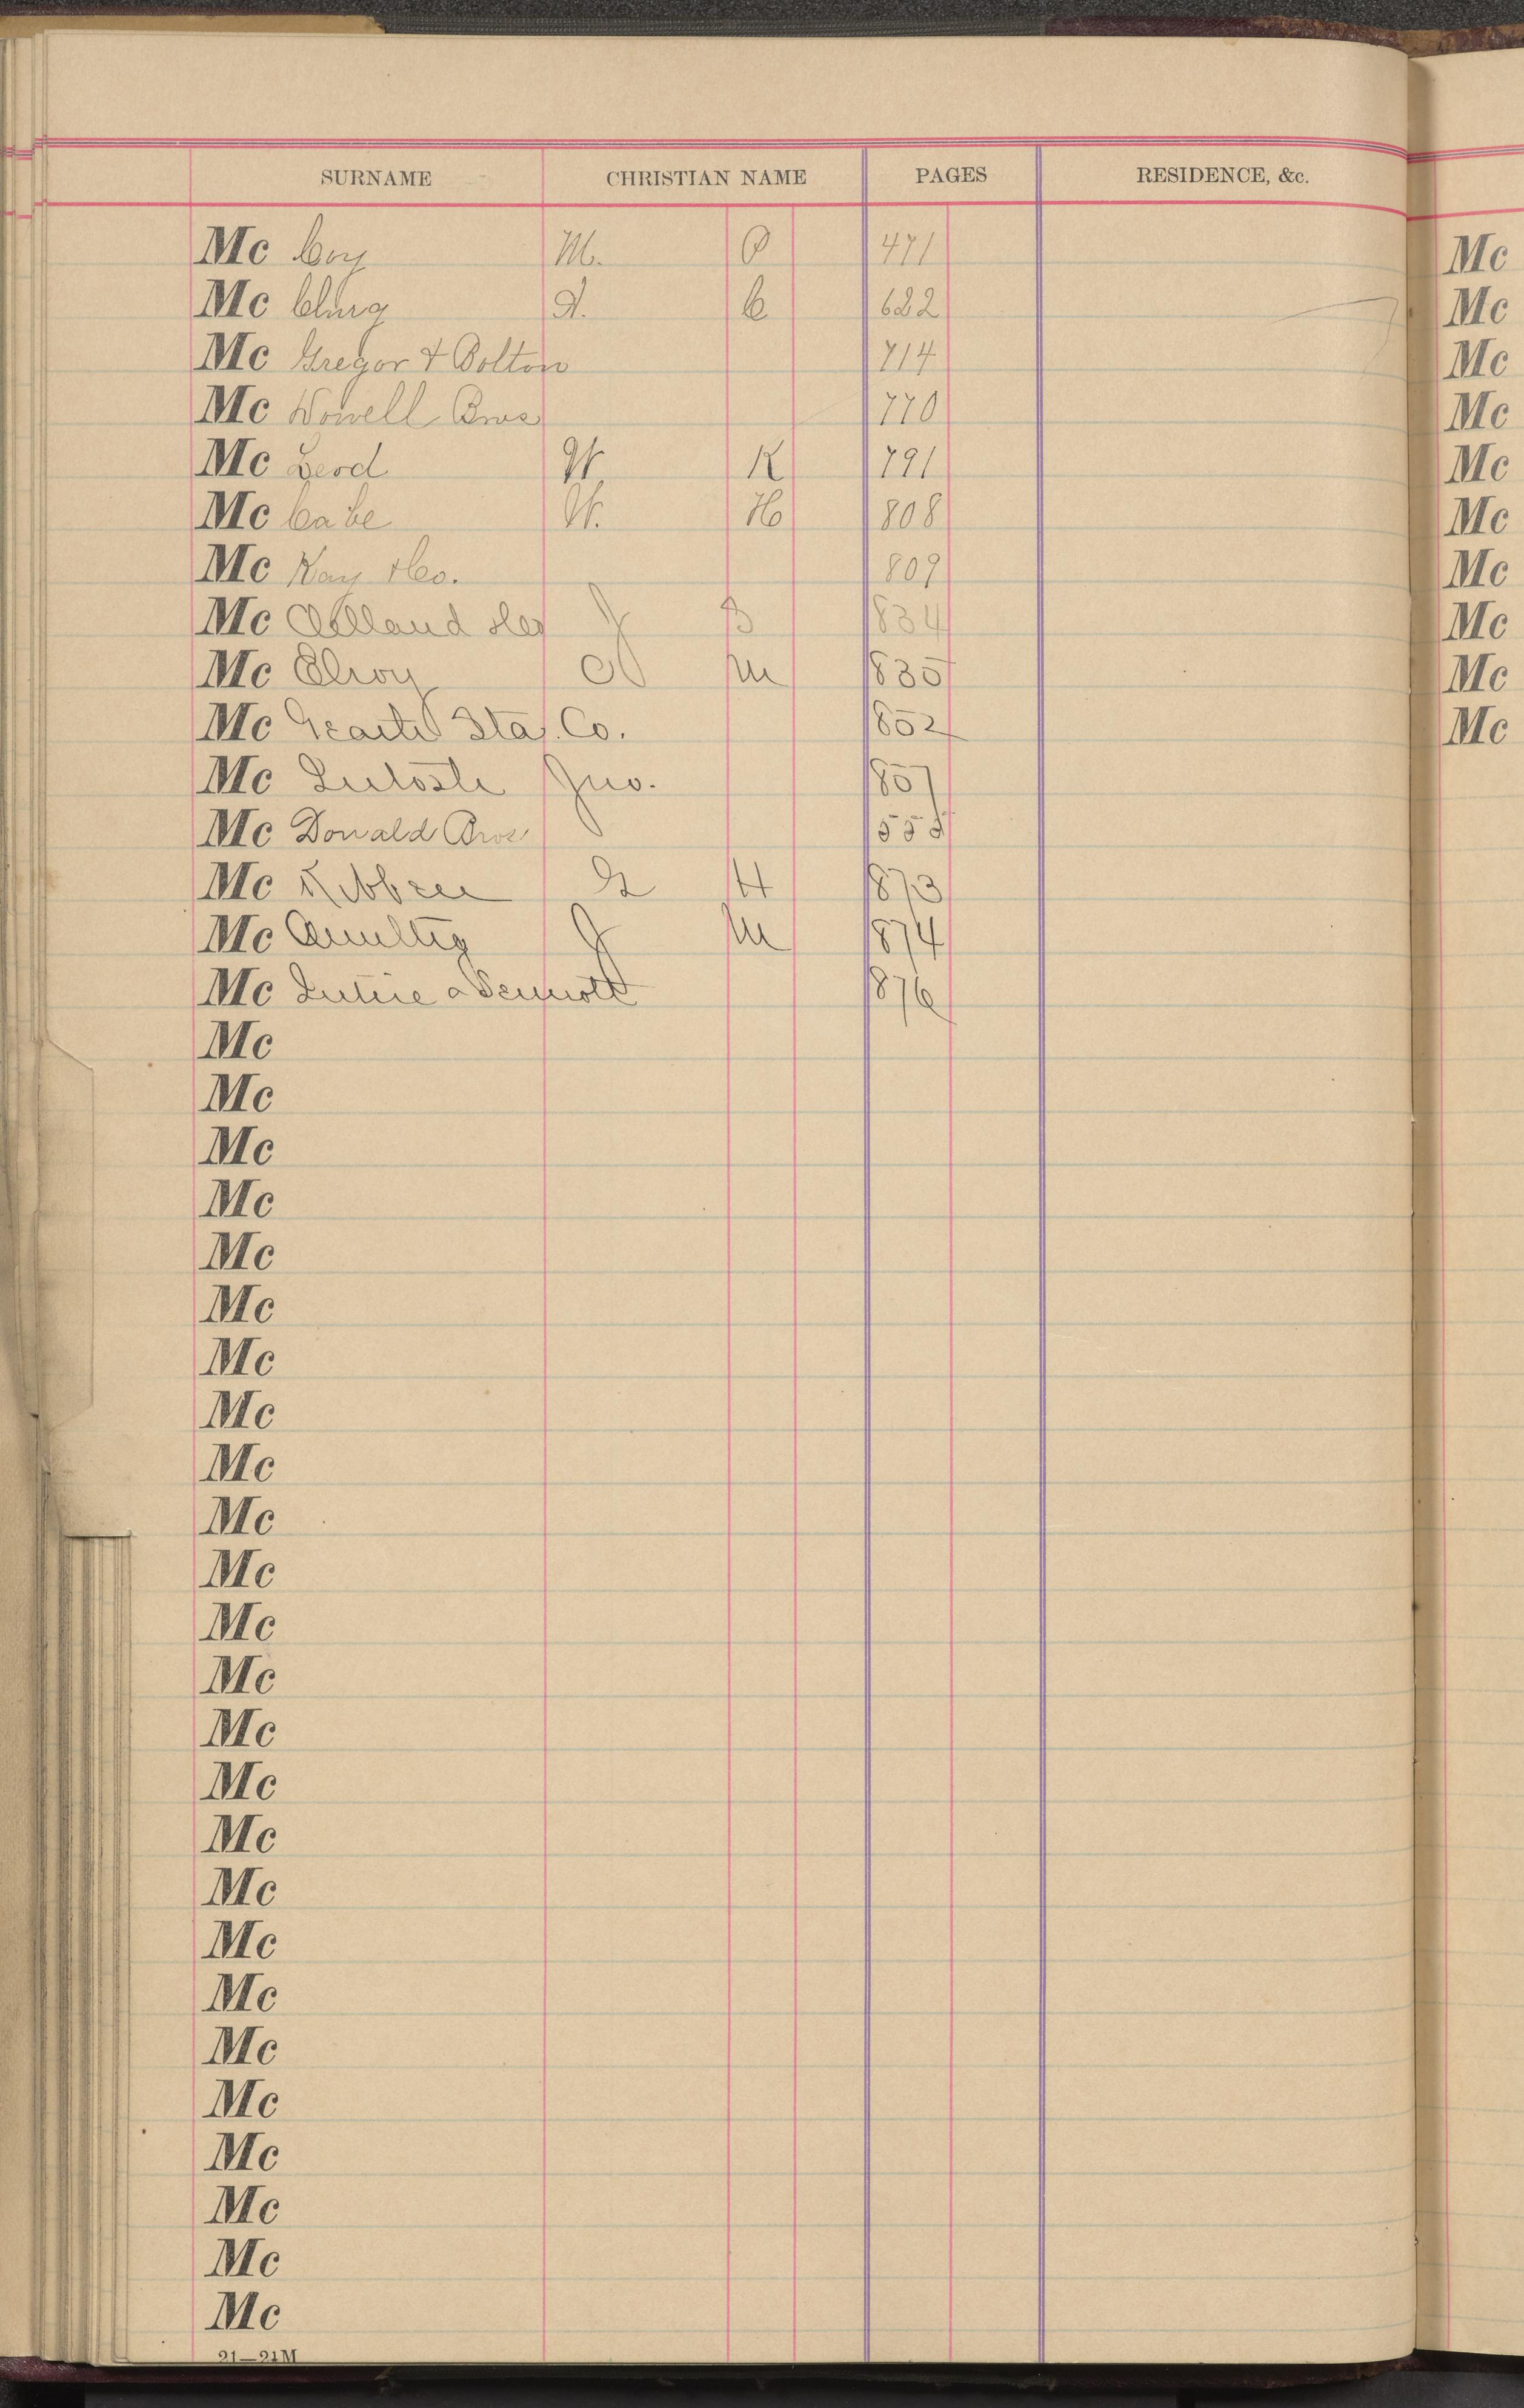 SURNAME CHRISTIAN NAME PAGES RESIDENCE, &c.
Mc Coy M. O 471
Mc Clurg A. C 622
Mc Gregor & Bolton 714
Mc Dowell Bros 770
Mc Leod W. K 791
Mc Cabe W. H 808
Mc Kay & Co. 809
Mc J B 834
Mc Elroy M 835
Mc Sta. Co. 852
Mc Jno. 857
Mc Donald Bros
Mc Kibben G H 873
Mc J M 874
Mc 876
Mc
Mc
Mc
Mc
Mc
Mc
Mc
Mc
Mc
Mc
Mc
Mc
Mc
Mc
Mc
Mc
Mc
Mc
Mc
Mc
Mc
Mc
Mc
Mc
Mc
21—21M
Mc
Mc
Mc
Mc
Mc
Mc
Mc
Mc
Mc
Mc